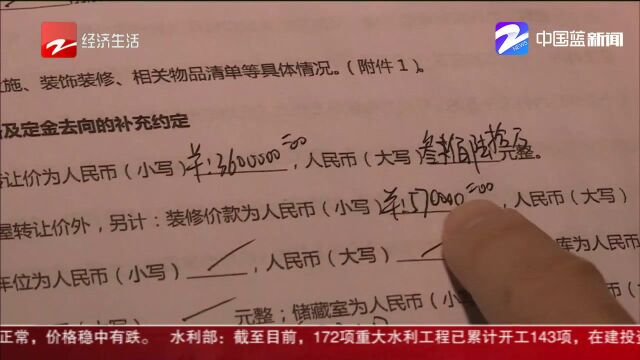 经济生活
中国蓝新闻
NEWS
施、装饰装修、相关物品清单等具体情况。(附件1)。
及定金去向的补充约定
转让价为人民币(小写)¥:3600000=00,人民币(大写)叁佰陆拾万元整。
屋转让价外,另计:装修价款为人民币(小写)¥:570000=00,人民币(大写)
车位为人民币(小写)/,人民币(大写)/库为人民币
/元整;储藏室为人民币(小写)
正常,价格稳中有跌。 水利部:截至目前,172项重大水利工程已累计开工143项,在建投